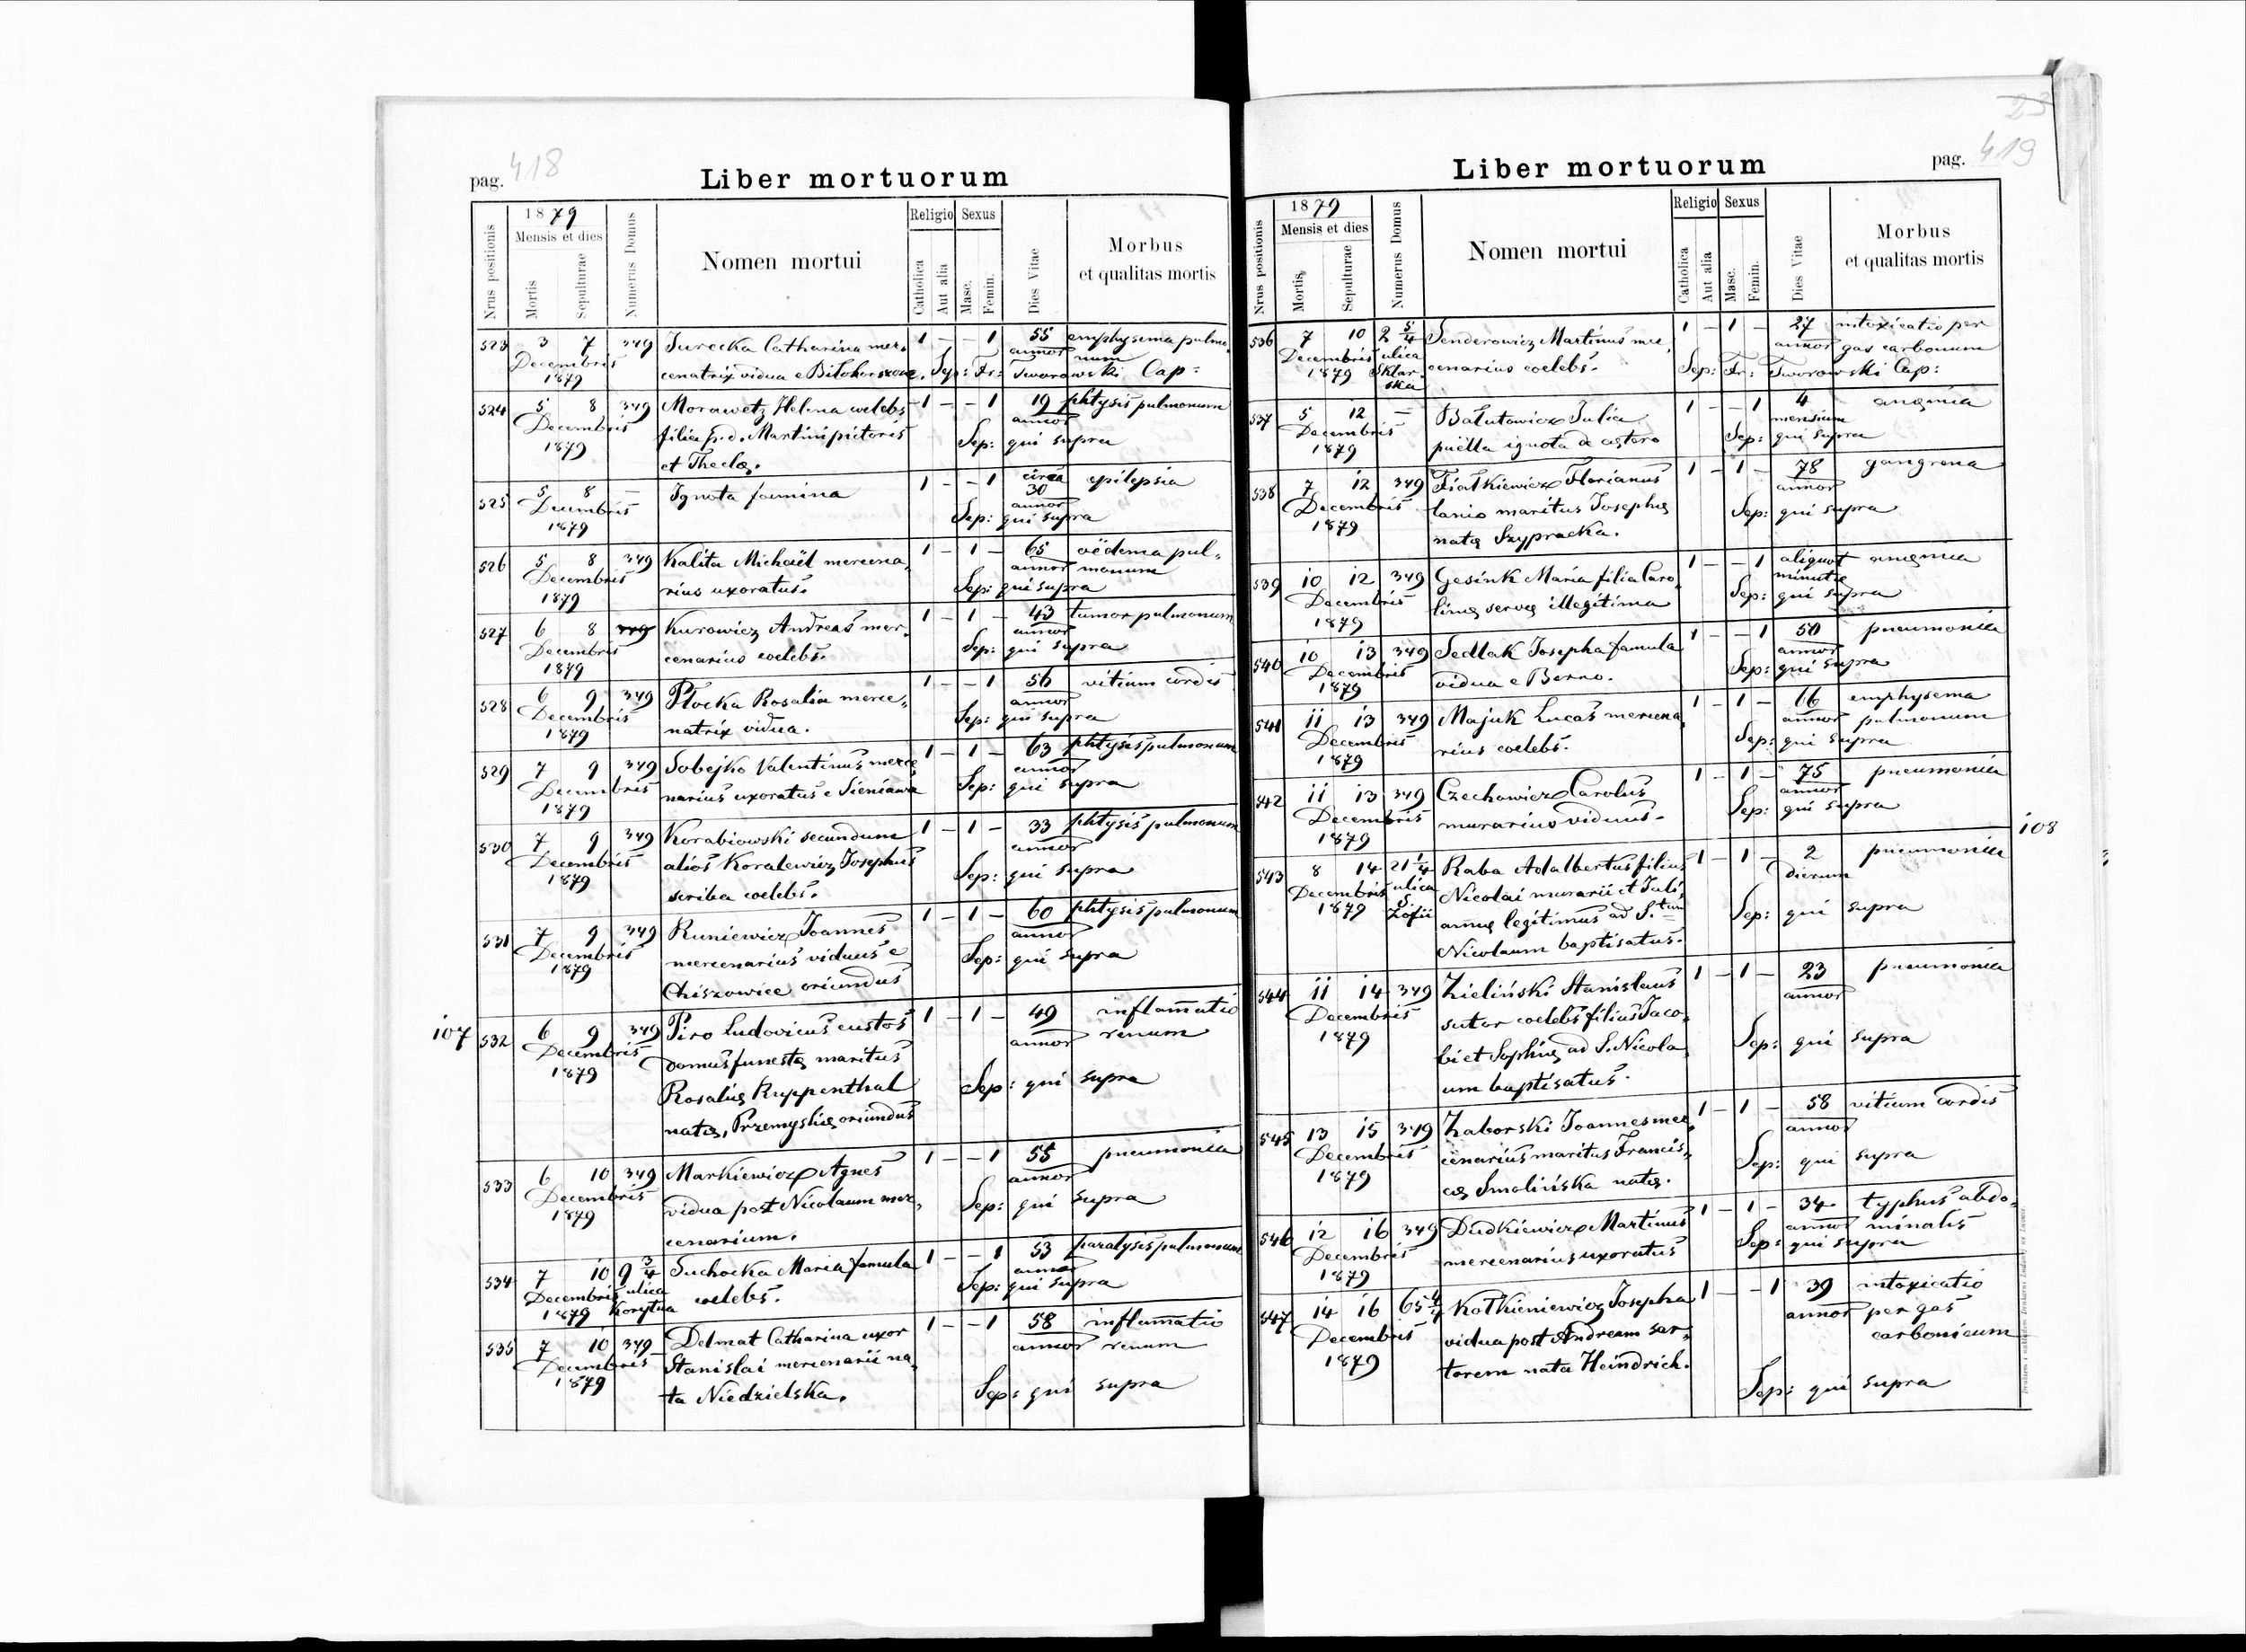 pag. 418
Liber mortuorum
Nrus positionis
1879
Mensis et dies
Mortis
Sepulturae
Numerus Domus
Nomen mortui
Religio
Catholica
Aut alia
Sexus
Masc.
Femin.
Dies Vitae
Morbus
et qualitas mortis
523 3 7 349 Turecka Catharina mer, 1 – – 1 55 emphysema pulmo,
Decembris annor num
1879 cenatrix vidua e Bilohorszcze. Sep: Fr: Tworowski Cap:
524 5 8 349 Morawetz Helena coelebs 1 – – 1 19 phtysis pulmonum
Decembris filia p.d. Martini pictoris annor
1879 et Theclę. Sep: qui supra
525 5 8 – Ignota foemina 1 – – 1 circa epilepsia
30
Decembris annor
1879 Sep: qui supra
526 5 8 349 Kalita Michaël mercena, 1 – 1 – 65 oëdema pul,
Decembris annor monum
1879 rius uxoratus. Sep: qui supra
527 6 8 349 Kurowicz Andreas mer, 1 – 1 – 43 tumor pulmonum
Decembris annor
1879 cenarius coelebs. Sep: qui supra
528 6 9 349 Płocka Rosalia merce, 1 – – 1 56 vitium cordis
Decembris annor
1879 natrix vidua. Sep: qui supra
529 7 9 349 Sobejko Valentinus merce, 1 – 1 – 63 phtysis pulmonum
Decembris annor
1879 narius uxoratus e Sieniawa Sep: qui supra
530 7 9 349 Korabiowski secundum 1 – 1 – 33 phtysis pulmonum
Decembris alios Koralewicz Josephus annor
1879 scriba coelebs. Sep: qui supra
531 7 9 349 Runiewicz Joannes 1 – 1 – 60 phtysis pulmonum
Decembris mercenarius viduus e annor
1879 Chiszowice oriundus Sep: qui supra
107 532 6 9 349 Piro Ludovicus custos 1 – 1 – 49 inflamatio
Decembris domus funestę maritus annor renum
1879 Rosalię Ruppenthal Sep: qui supra
natę, Przemyślię oriundus
533 6 10 349 Markiewicz Agnes 1 – – 1 55 pneumonia
Decembris vidua post Nicolaum mer, annor
1879 cenarium. Sep: qui supra
534 7 10 9 3/4 Suchocka Maria famula 1 – – 1 53 paralysis pulmonum
Decembris ulica annor
1879 Korytna coelebs. Sep: qui supra
535 7 10 349 Delmat Catharina uxor 1 – – 1 58 inflamatio
Decembris Stanislai mercenarii na, annor renum
1879 ta Niedzielska. Sep: qui supra
Liber mortuorum
pag. 419
Nrus positionis
1879
Mensis et dies
Mortis
Sepulturae
Numerus Domus
Nomen mortui
Religio
Catholica
Aut alia
Sexus
Masc.
Femin.
Dies Vitae
Morbus
et qualitas mortis
536 7 10 2 5/4 Senderowicz Martinus mer, 1 – 1 – 27 intoxicatio per
Decembris ulica annor gas carbonum
1879 Sklar cenarius coelebs. Sep: Fr: Tworowski Cap:
ska
537 5 12 – Bałutowicz Julia 1 – – 1 4 angina
Decembris mensium
1879 puëlla ignota Sep: qui supra
538 7 12 349 Fiałkiewicz Florianus 1 – 1 – 78 gangrena
Decembris lanio maritus Josephę annor
1879 natę Szypracka. Sep: qui supra
539 10 12 349 Gesink Maria filia Caro, 1 – – 1 aliquot angina
Decembris minutę
1879 linę servę illegitima Sep: qui supra
540 10 13 349 Sedlak Josepha famula 1 – – 1 50 pneumonia
Decembris annor
1879 vidua e Berno. Sep: qui supra
541 11 13 349 Majuk Lucas mercena, 1 – 1 – 66 emphysema
Decembris annor pulmonum
1879 rius coelebs. Sep: qui supra
542 11 13 349 Czechowicz Carolus 1 – 1 – 75 pneumonia
Decembris annor
1879 murarius viduus. Sep: qui supra
108
543 8 14 21 1/4 Raba Adalbertus filius 1 – 1 – 2 pneumonia
Decembris ulica Nicolai murarii et Juli, dierum
1879 S. annę legitimus ad S.tum Sep: qui supra
Zofii Nicolaum baptisatus.
544 11 14 349 Zieliński Stanislaus 1 – 1 – 23 pneumonia
Decembris sutor coelebs filius Jaco, annor
1879 bi et Sophię ad S. Nicola, Sep: qui supra
um baptisatus.
545 13 15 349 Zaborski Joannes mer, 1 – 1 – 58 vitium cordis
Decembris cenarius maritus Francis, annor
1879 cę Smolińska natę. Sep: qui supra
546 12 16 349 Dudkiewicz Martinus 1 – 1 – 34 typhus abdo,
Decembris annor minalis
1879 mercenarius uxoratus Sep: qui supra
547 14 16 65 4/4 Kotkieniewicz Josepha 1 – – 1 39 intoxicatio
Decembris vidua post Andream sar, annor per gas
1879 torem nata Heindrich. carbonicum
Sep: qui supra